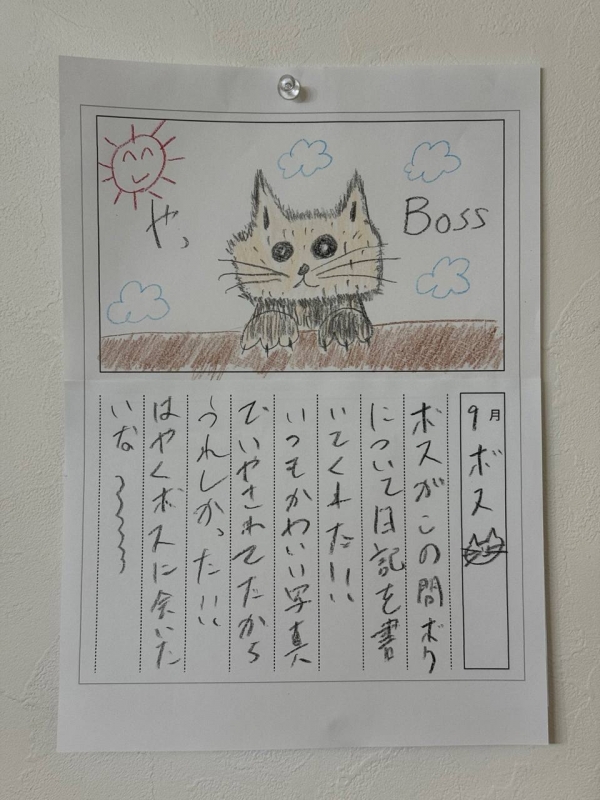 や、
Boss
9月 ボス
ボスがこの間ボク
について日記を書
いてくれた!!
いつもかわいい写真
でいやされてたから
うれしかった!!
はやくボスに会いた
いな〜〜〜〜